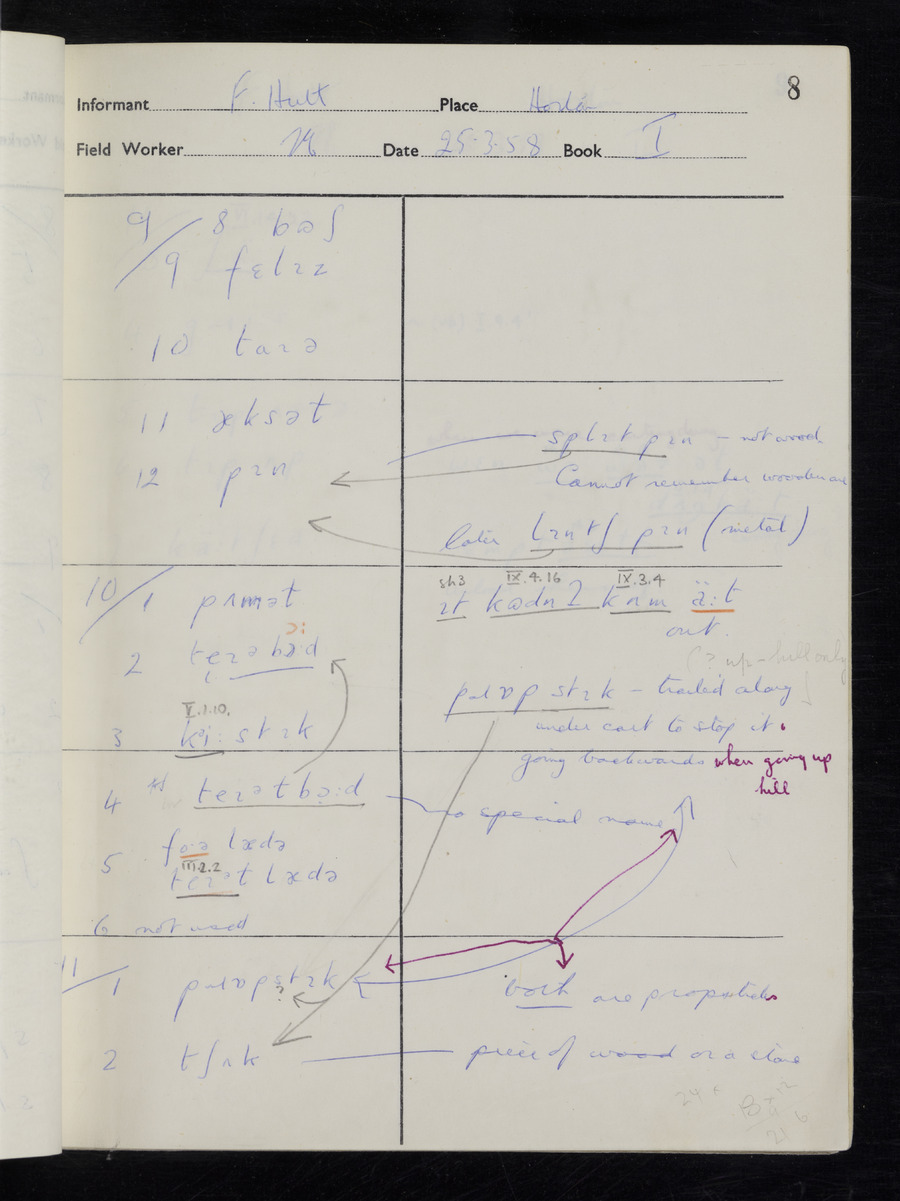 8
Informant F. Hutt Place Hordle
Field Worker Date 25·3·58 Book I
9/8 bəʃ
/9 fɛlɪz
10 taɪə
11 æksət
splɪt pɪn – not wood.
12 pɪn
Cannot remember wooden one
later lɪntʃ pɪn (metal)
sh3 IX.4.16 IX.3.4
10/1 pʌmət
ɪt kədnʔ kʌm ä:t
out.
ɔ:
2
(? up-hill only)
pɹɒp stɪk – trailed along
V.1.10.
3 ki: stɪk
under cart to stop it.
going backwards when going up
hill
4
no special name
5 lædə
III.2.2
lædə
6 not used
11/1 pɹɒpstɪk
?
both are propsticks
2 tʃʌk
piece of wood or a stone
24